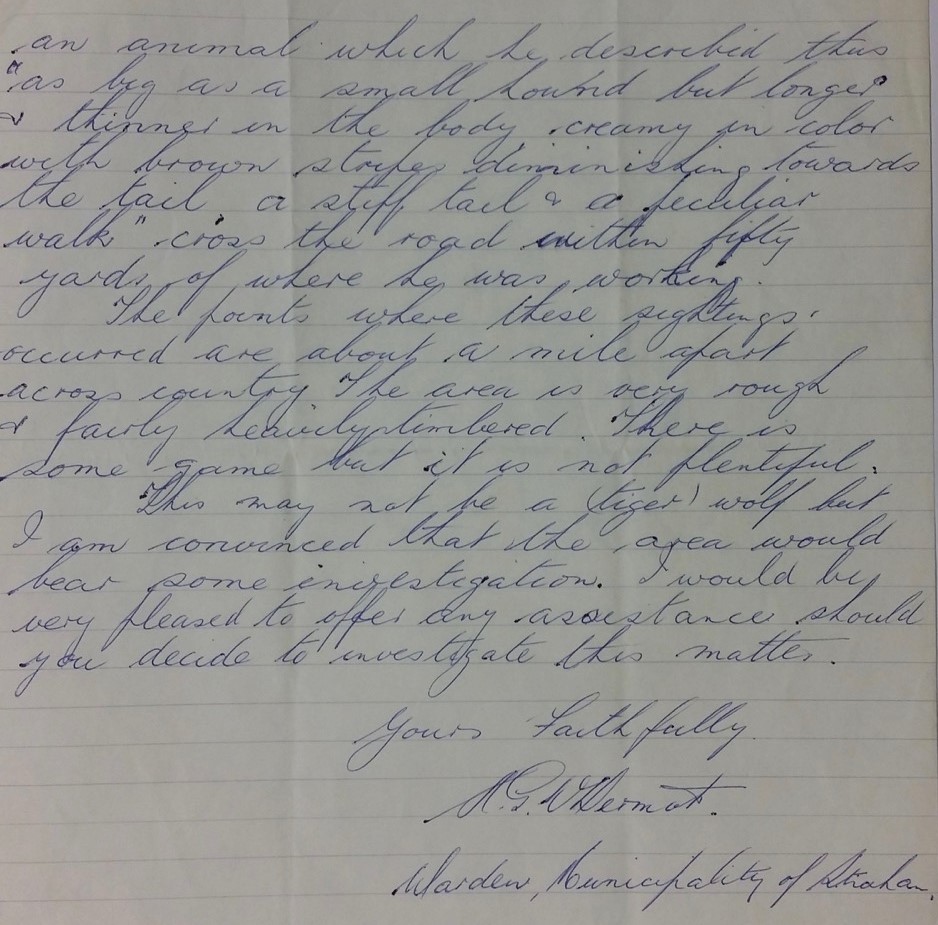 an animal which he described thus
"as big as a small hound but longer
& thinner in the body, creamy in color
with brown stripes diminishing towards
the tail, a stiff tail & a peculiar
walk" cross the road within fifty
yards of where he was working.
The points where these sightings
occurred are about a mile apart
across country The area is very rough
& fairly heavily timbered. There is
some game but it is not plentiful.
This may not be a (tiger) wolf but
I am convinced that the area would
bear some investigation. I would be
very pleased to offer any assistance should
you decide to investigate this matter.
Yours Faithfully
McDermot.
Warden, Municipality of Strahan.